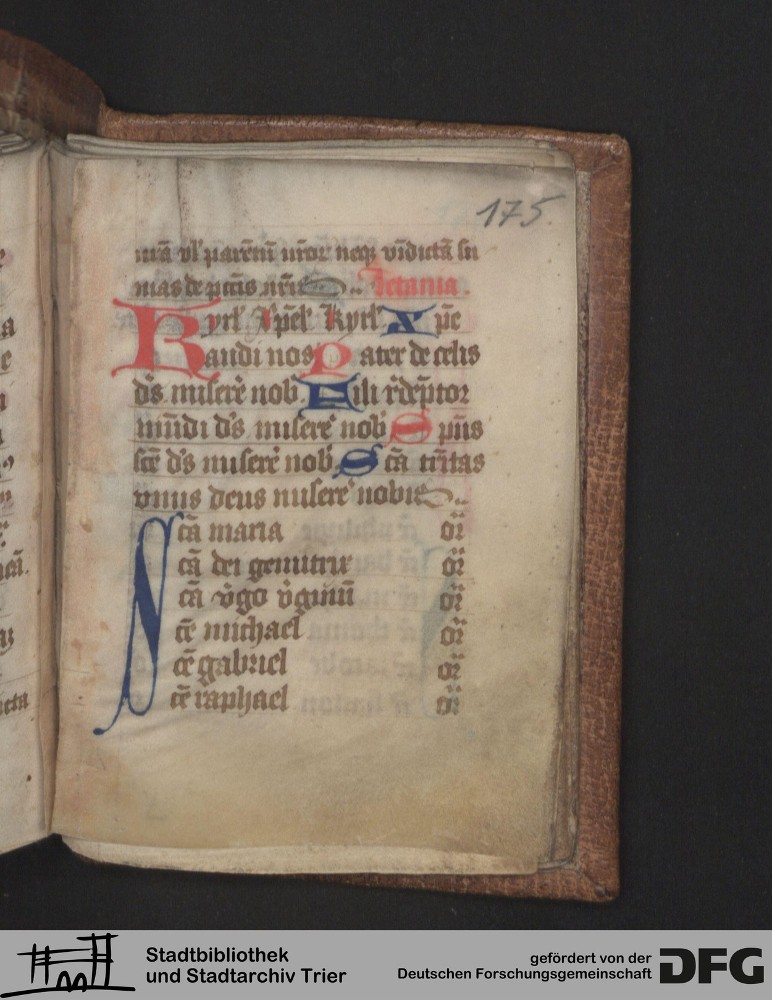 175.
nrā vl' parētū nror neq vīdictā su
mas de pctīs nrīs .. letania .
Kyrl' Xpēl' kyrl' Xpē
audi nos Pater de celis
ds miserē nob' Fili rēdēptor
mūdi ds miserē nob' Spūs
scē ds miserē nob' Scā trītas
vnus deus miserē nobis ..
Scā maria or
cā dei genitrix or
cā vgo vginū or
cē michael or
cē gabriel or
cē raphael or
Stadtbibliothek
und Stadtarchiv Trier
gefördert von der
Deutschen Forschungsgemeinschaft
DFG